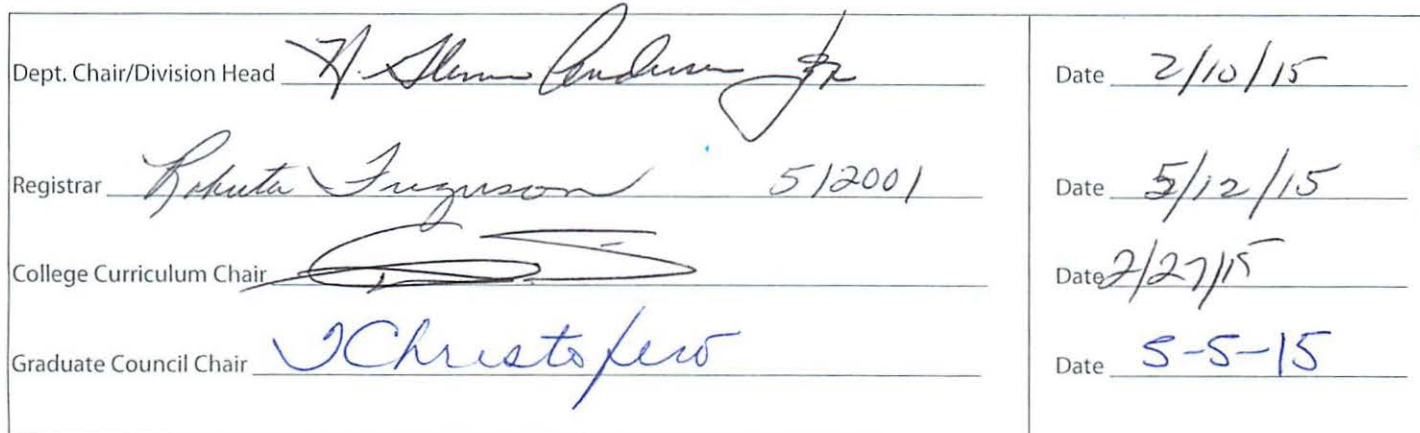 Dept. Chair/Division Head Anderson Jr Date 2/10/15
Registrar Roberta Ferguson 512001 Date 5/12/15
College Curriculum Chair Date 2/27/15
Graduate Council Chair Christofero Date 5-5-15